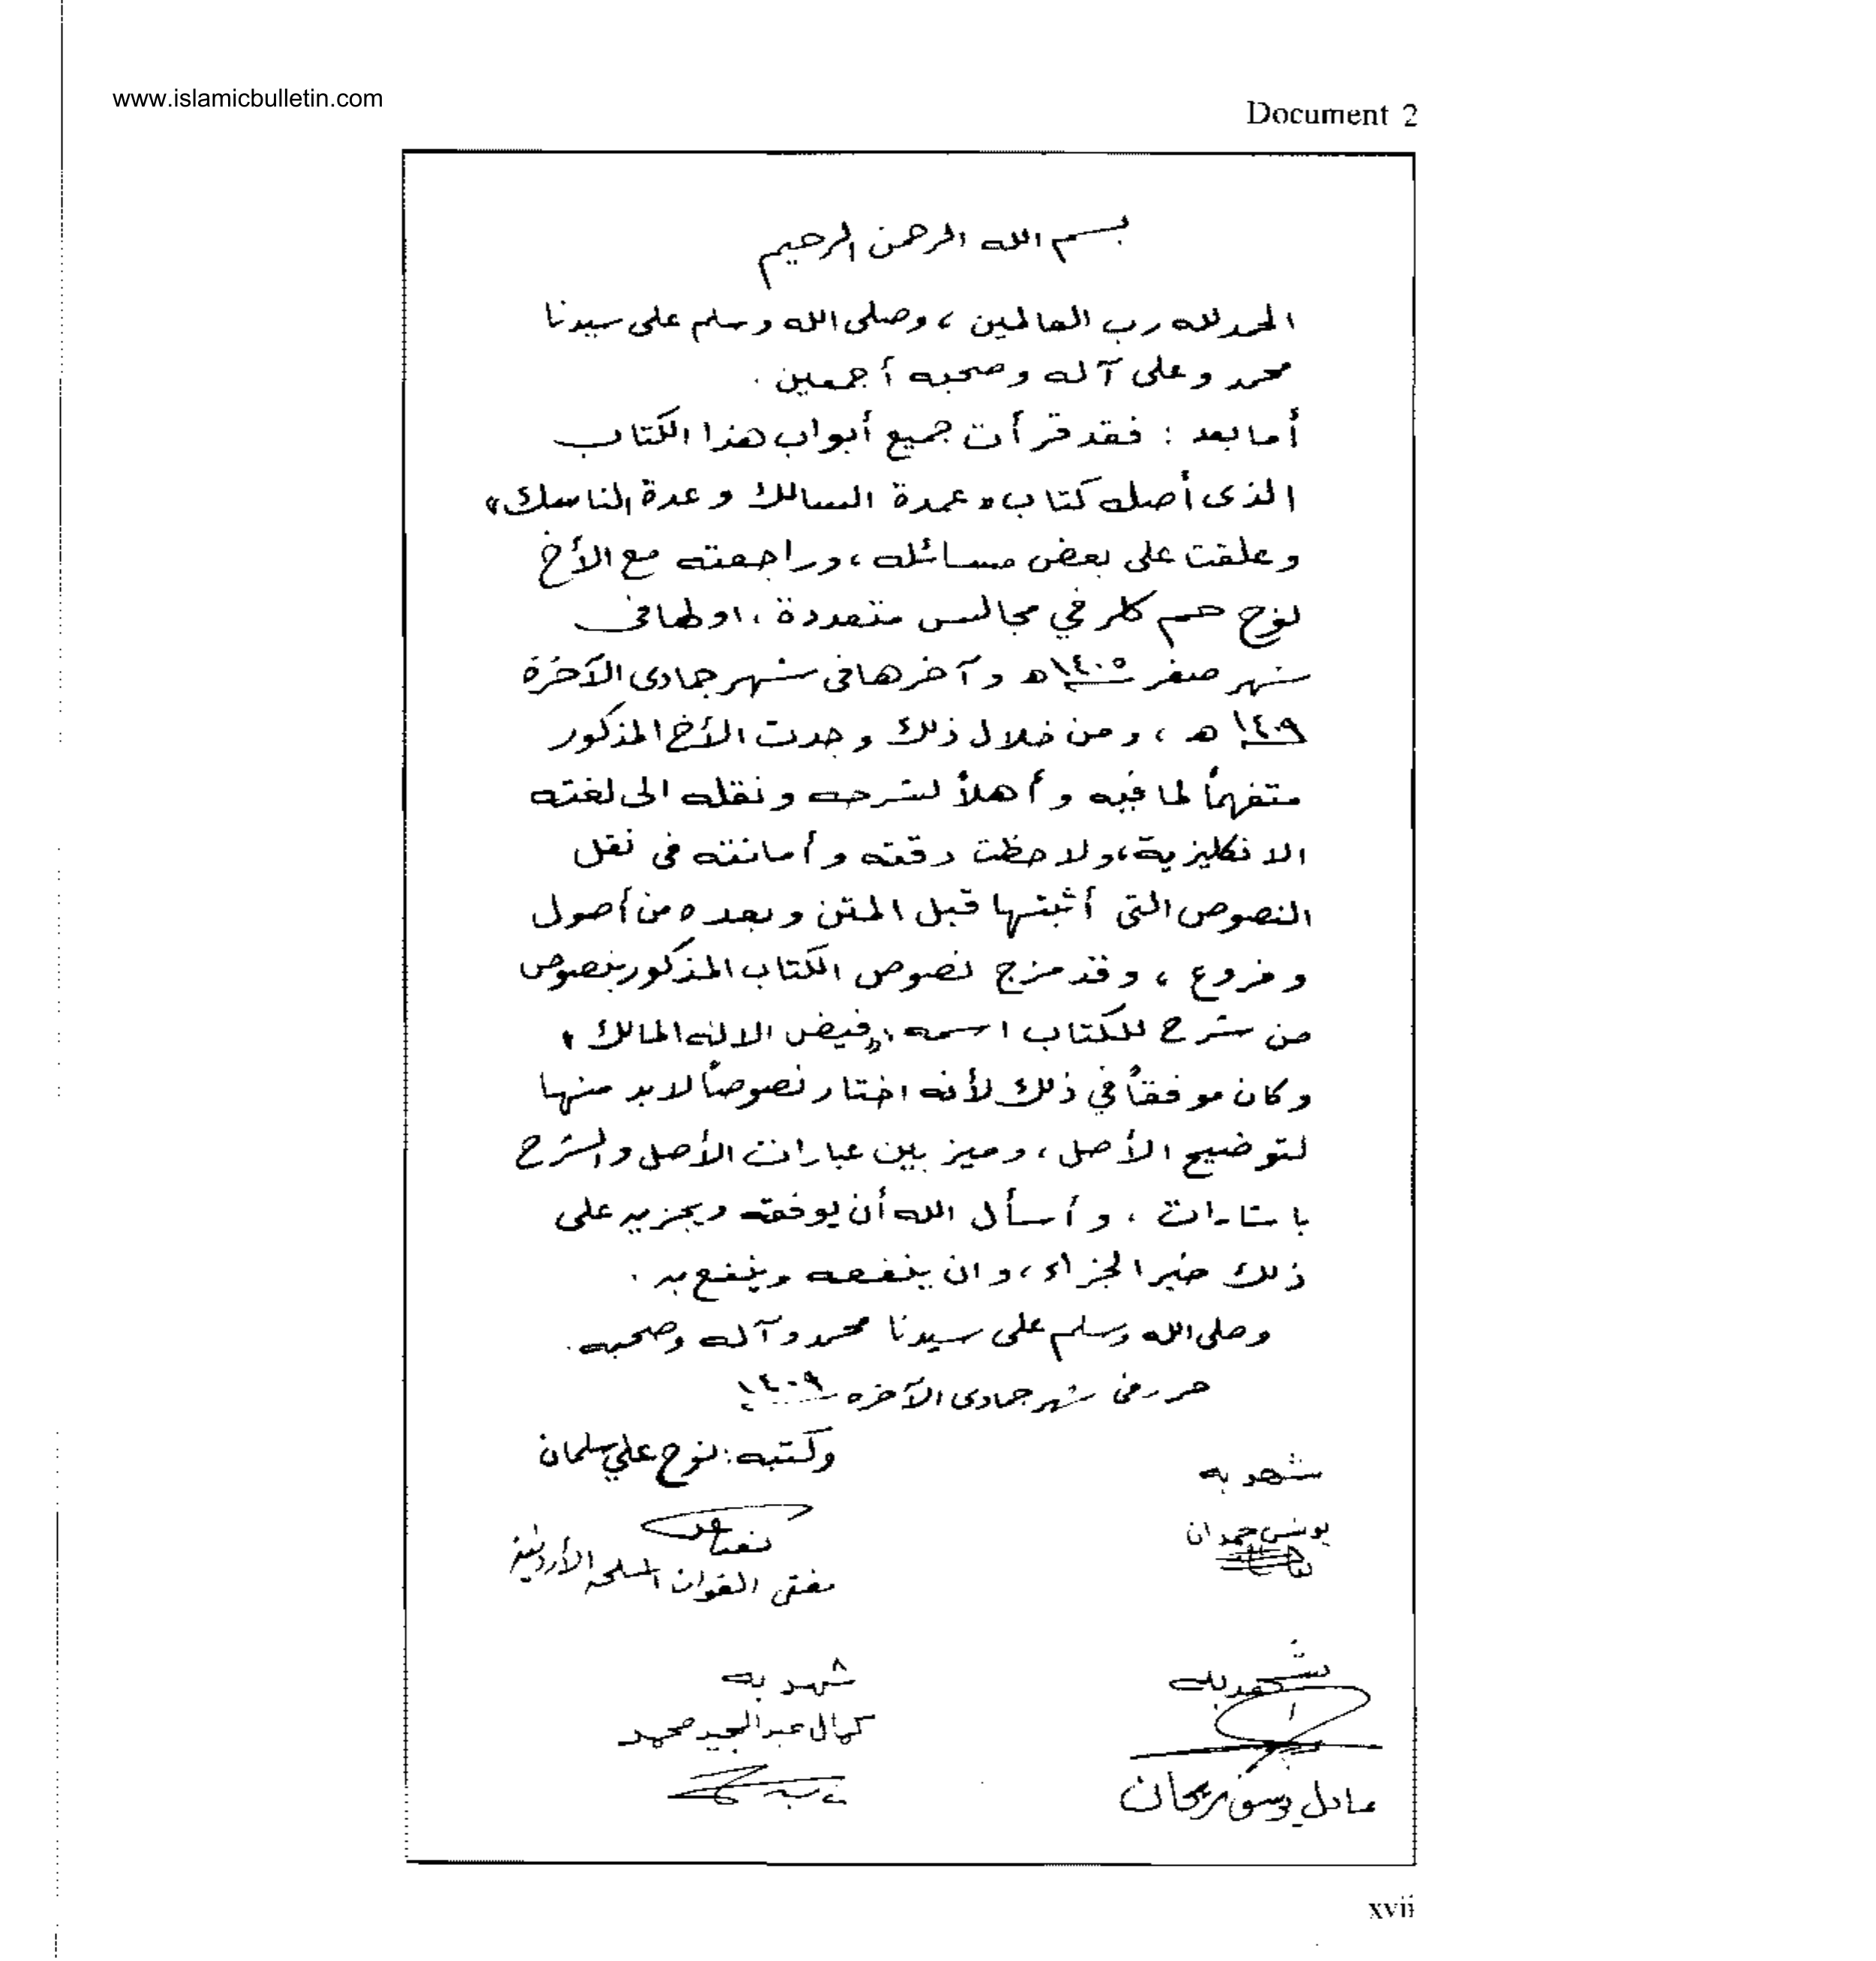 www.islamicbulletin.com
Document 2
بسم الله الرحمن الرحيم
الحمد لله رب العالمين ، وصلى الله وسلم على سيدنا
محمد وعلى آله وصحبه أجمعين .
أما بعد : فقد قرأت جميع أبواب هذا الكتاب
الذى أصله كتاب « عمدة السالك وعدة الناسك »
وعلقت على بعض مسائله ، وراجعته مع الأخ
نوح حم كلر في مجالس متعددة ، اولها فى
شهر صفر ١٤٠٥ هـ وآخرها فى شهر جمادى الآخرة
١٤٠٩ هـ ، ومن خلال ذلك وجدت الأخ المذكور
متفهماً لما فيه وأهلاً لشرحه ونقله الى لغته
الانكليزية ، ولاحظت دقته وأمانته فى نقل
النصوص التى أثبتها قبل المتن وبعده من أصول
وفروع ، وقد مزج نصوص الكتاب المذكور بنصوص
من شرح للكتاب اسمه « فيض الاله المالك »
وكان موفقاً في ذلك لأنه اختار نصوصاً لا بد منها
لتوضيح الأصل ، وميز بين عبارات الأصل والشرح
باشارات ، وأسأل الله أن يوفقه ويجزيه على
ذلك خير الجزاء ، وان ينفعه وينفع به .
وصلى الله وسلم على سيدنا محمد وآله وصحبه .
حرر فى شهر جمادى الآخره ١٤٠٩
وكتبه : نوح علي سلمان
مفتى القوات المسلحه الأردنية
شهد به
يونس حمدان
شهد به
عادل يوسف ريحان
شهد به
كمال عبد المجيد محمد
xvii